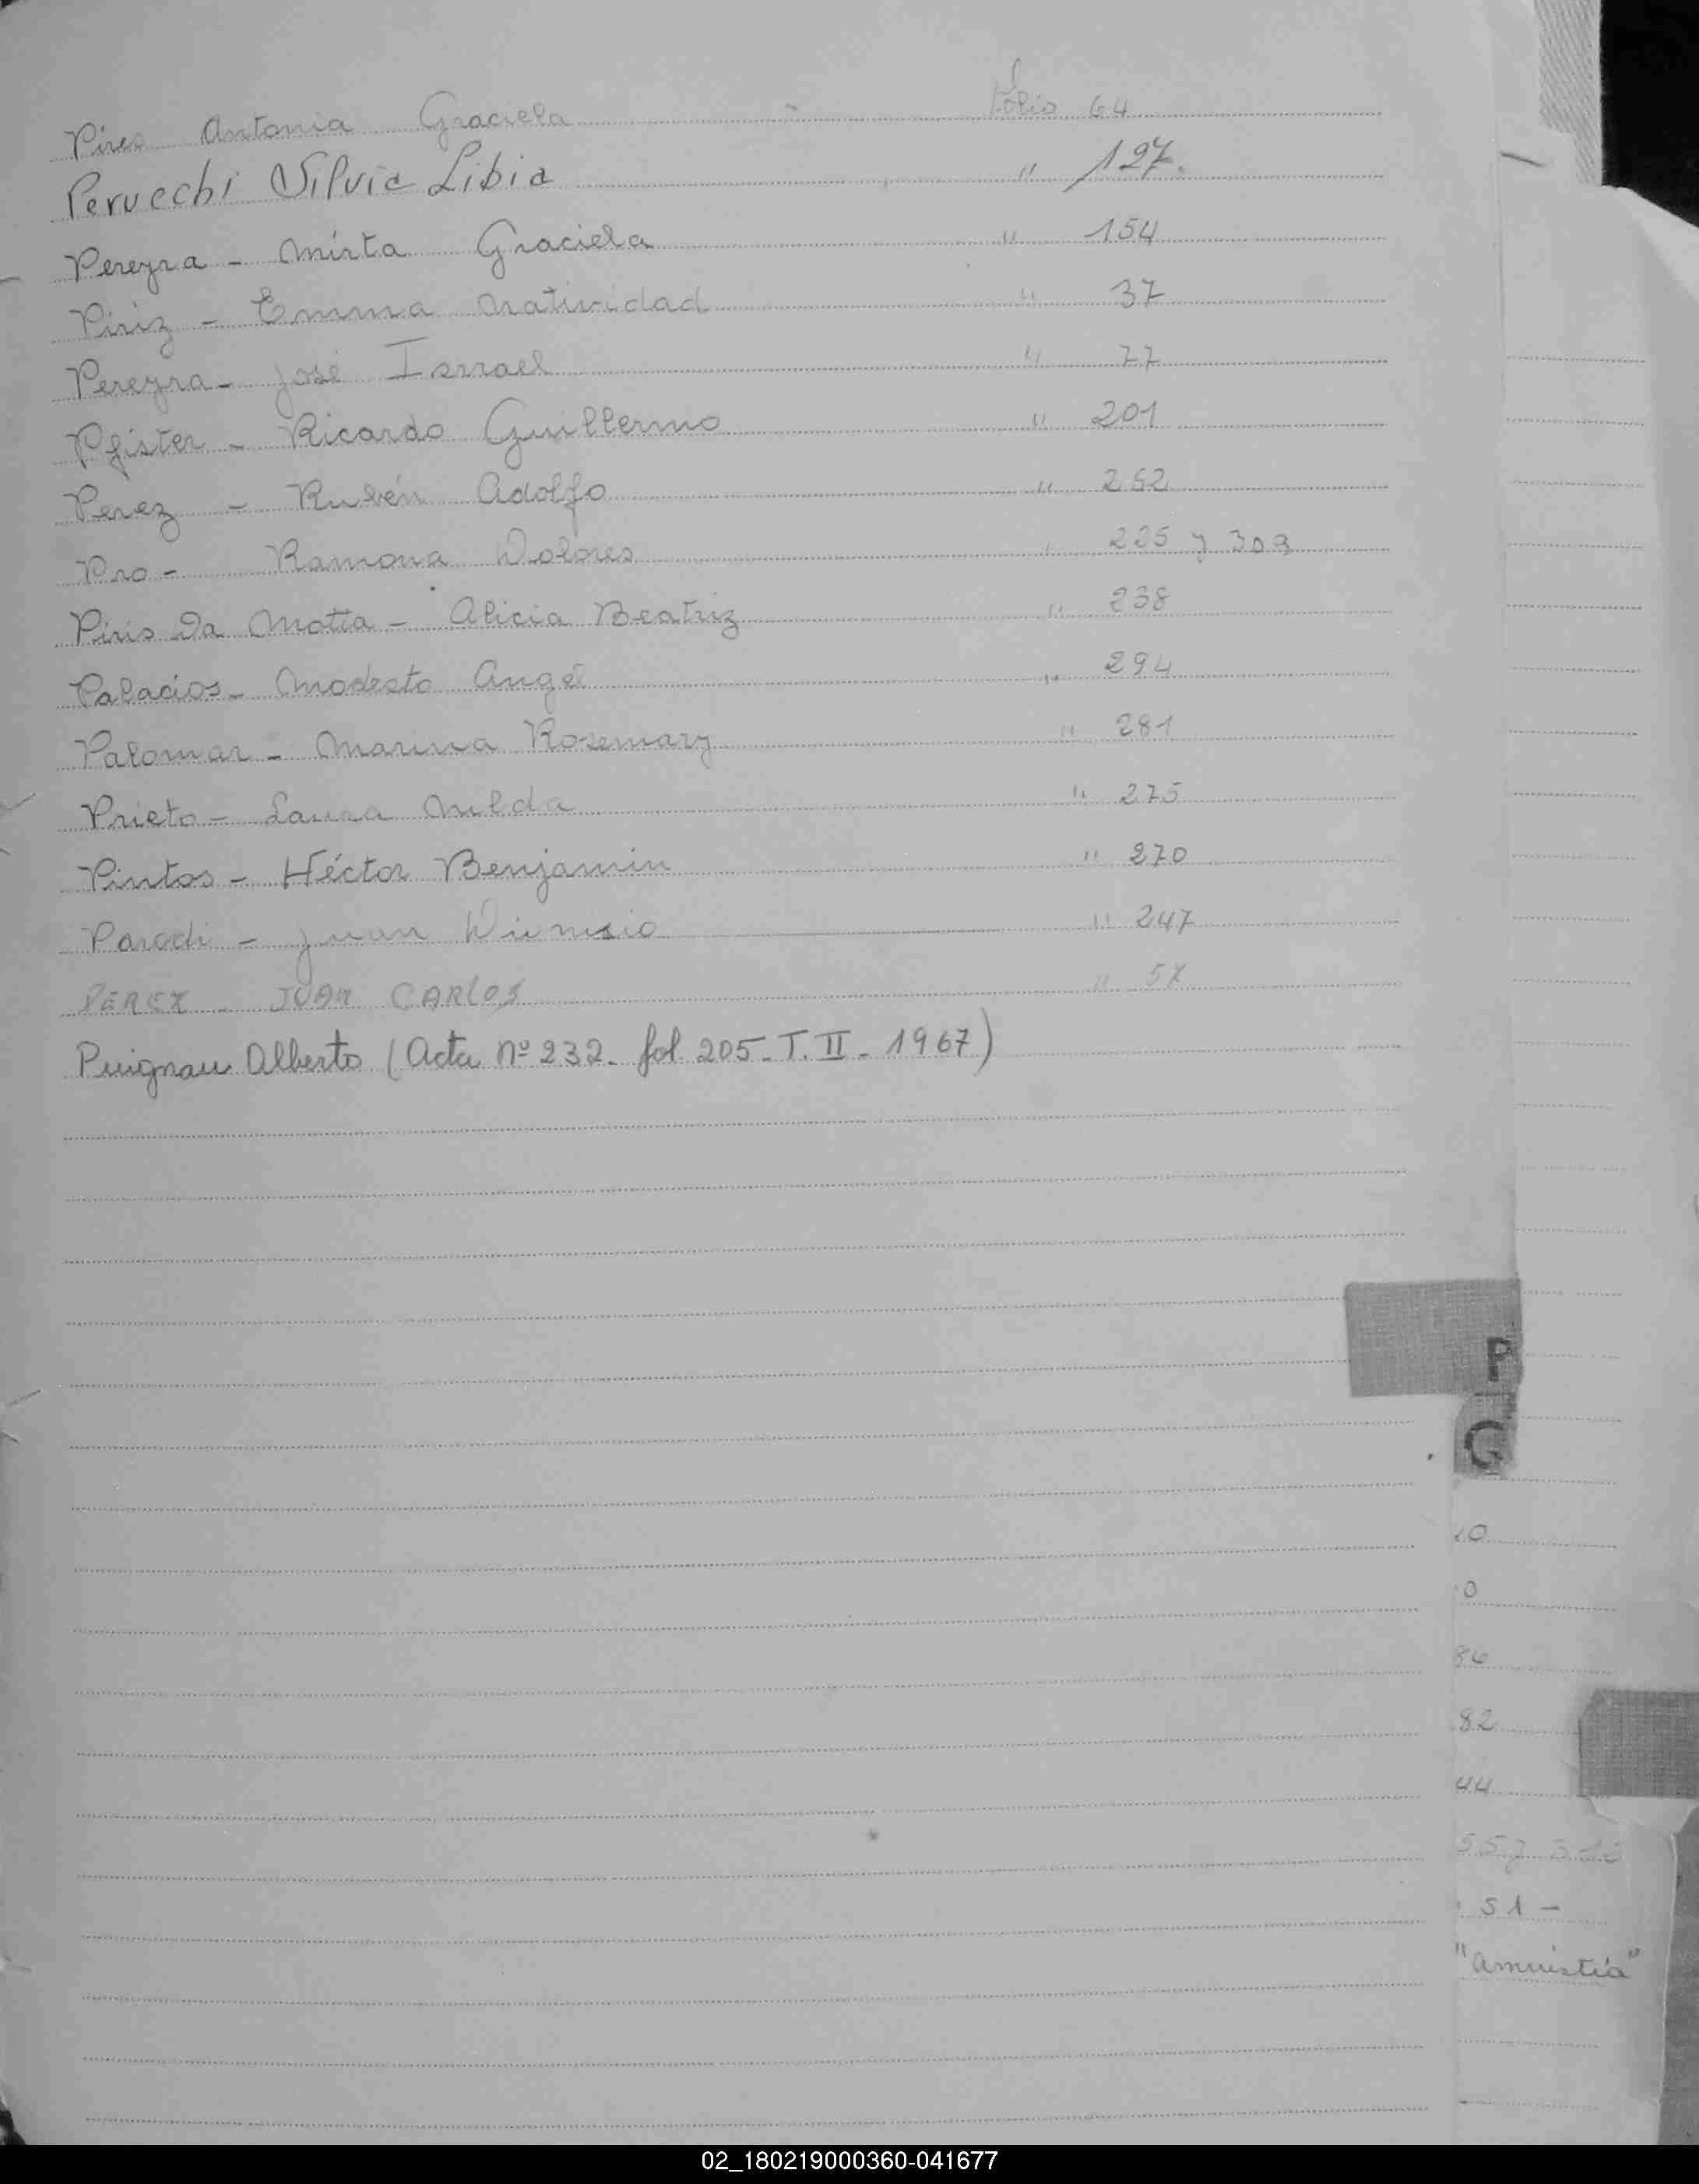 Pires Antonia Graciela folio 64
Peruechi Silvia Libia " 127.
Pereyra - Mirta Graciela " 154
Piriz - Emma Natividad " 37
Pereyra - José Isrrael " 77
Pfister - Ricardo Guillermo " 201
Perez - Rubén Adolfo " 252
Pro - Ramona Dolores " 225 y 309
Piris Da Motta - Alicia Beatriz " 238
Palacios - Modesto Angel " 294
Palomar - Marina Rosemary " 281
Prieto - Laura Nilda " 275
Pintos - Héctor Benjamin " 270
Parodi - Juan Dionisio " 247
PEREZ - JUAN CARLOS " 57
Puignau Alberto (Acta nº 232. fol 205. T. II - 1967)
P
G
0
86
82
44
51 -
"amnistia"
02_180219000360-041677